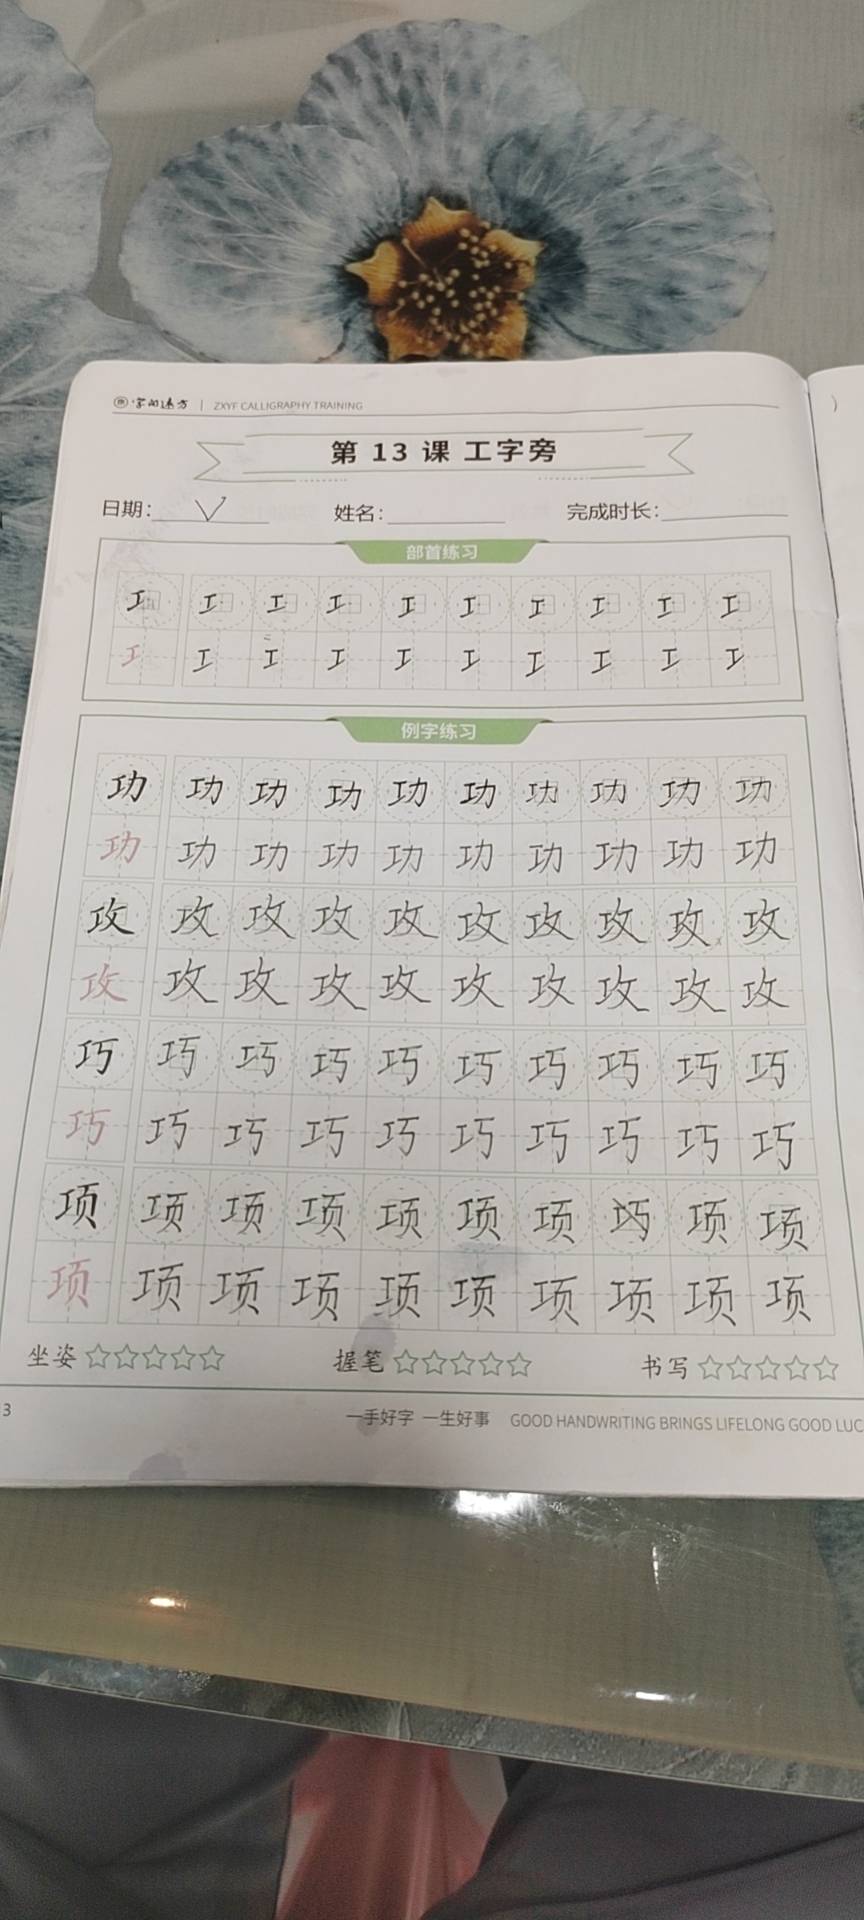 字的远方 | ZXYF CALLIGRAPHY TRAINING
第 13 课 工字旁
日期: 姓名: 完成时长:
部首练习
工 工 工 工 工 工 工 工 工 工
工 工 工 工 工 工 工 工 工 工
例字练习
功 功 功 功 功 功 功 功 功 功
功 功 功 功 功 功 功 功 功 功
攻 攻 攻 攻 攻 攻 攻 攻 攻 攻
攻 攻 攻 攻 攻 攻 攻 攻 攻 攻
巧 巧 巧 巧 巧 巧 巧 巧 巧 巧
巧 巧 巧 巧 巧 巧 巧 巧 巧 巧
项 项 项 项 项 项 项 巧 项 项
项 项 项 项 项 项 项 项 项 项
坐姿 ☆☆☆☆☆ 握笔 ☆☆☆☆☆ 书写 ☆☆☆☆☆
3 一手好字 一生好事 GOOD HANDWRITING BRINGS LIFELONG GOOD LUC